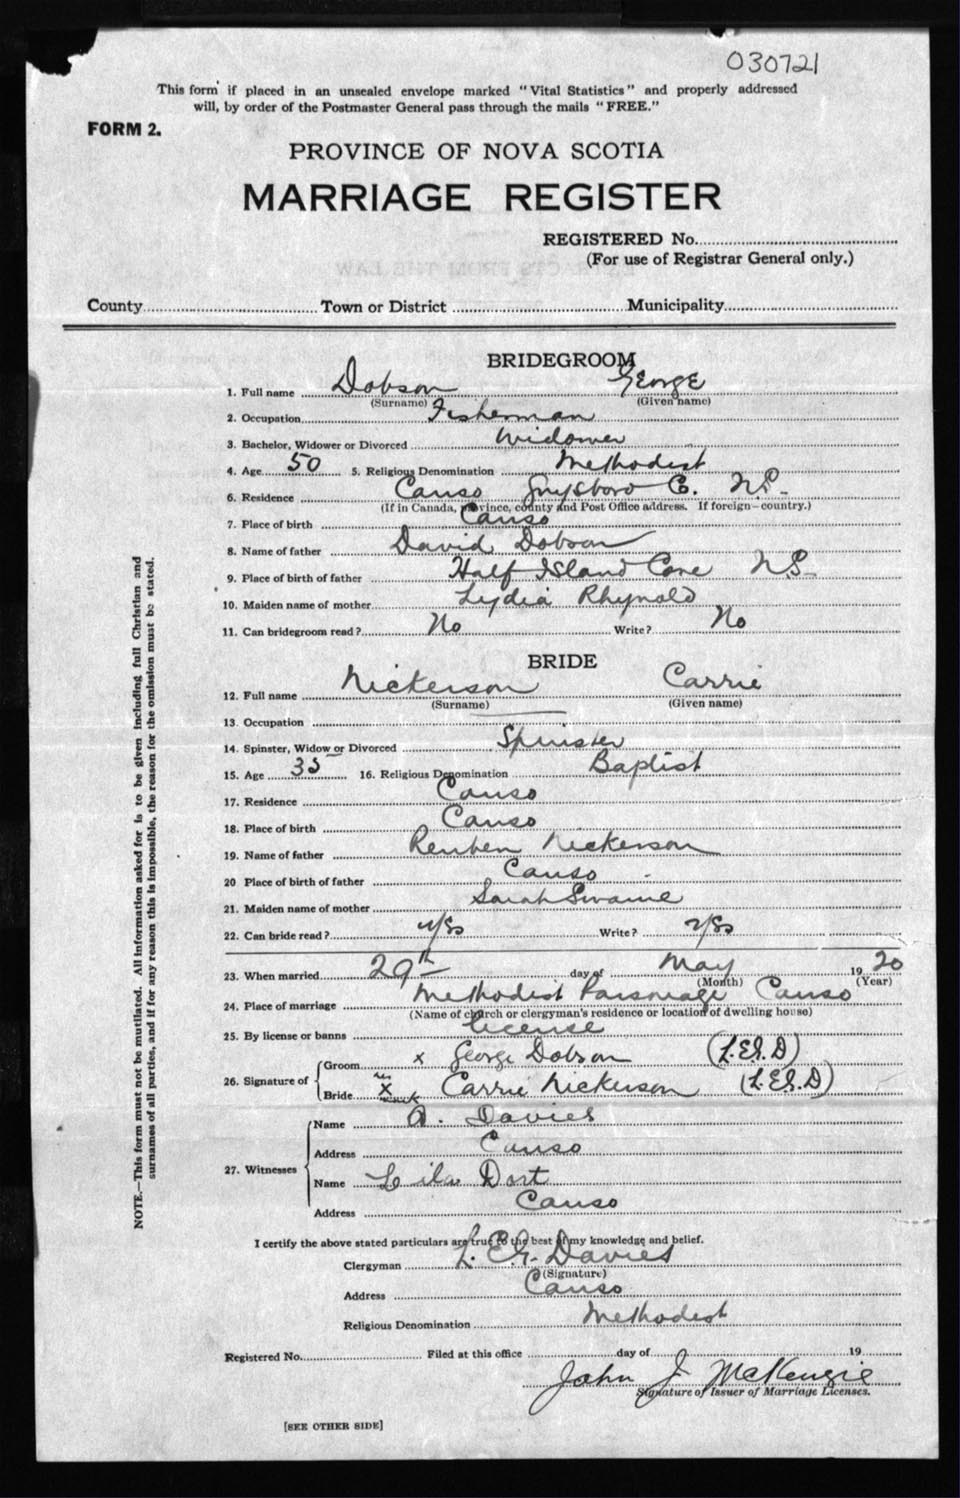 030721
This form if placed in an unsealed envelope marked "Vital Statistics" and properly addressed
will, by order of the Postmaster General pass through the mails "FREE."
FORM 2.
PROVINCE OF NOVA SCOTIA
MARRIAGE REGISTER
REGISTERED No.
(For use of Registrar General only.)
County Town or District Municipality
BRIDEGROOM
1. Full name Dobson George
(Surname) (Given name)
2. Occupation Fisherman
3. Bachelor, Widower or Divorced Widower
4. Age 50 5. Religious Denomination Methodist
6. Residence Canso Guysboro Co. N.S.
(If in Canada, province, county and Post Office address. If foreign—country.)
7. Place of birth Canso
8. Name of father David Dobson
9. Place of birth of father Half Island Cove N.S.
10. Maiden name of mother Lydia Rhynold
11. Can bridegroom read? No Write? No
BRIDE
12. Full name Nickerson Carrie
(Surname) (Given name)
13. Occupation
14. Spinster, Widow or Divorced Spinster
15. Age 35 16. Religious Denomination Baptist
17. Residence Canso
18. Place of birth Canso
19. Name of father Reuben Nickerson
20 Place of birth of father Canso
21. Maiden name of mother Sarah Swaine
22. Can bride read? Yes Write? Yes
23. When married 29th day of May 1920
(Month) (Year)
24. Place of marriage Methodist Parsonage Canso
(Name of church or clergyman's residence or location of dwelling house)
25. By license or banns License
26. Signature of
Groom x George Dobson (L.E.G.D)
Bride her x mark Carrie Nickerson (L.E.G.D)
27. Witnesses
Name A. Davies
Address Canso
Name Leila Dort
Address Canso
I certify the above stated particulars are true to the best of my knowledge and belief.
Clergyman L. E. G. Davies
(Signature)
Address Canso
Religious Denomination Methodist
Registered No. Filed at this office day of 19
John J McKenzie
Signature of Issuer of Marriage Licenses.
[SEE OTHER SIDE]
NOTE.—This form must not be mutilated. All information asked for is to be given including full Christian and
surnames of all parties, and if for any reason this is impossible, the reason for the omission must be stated.